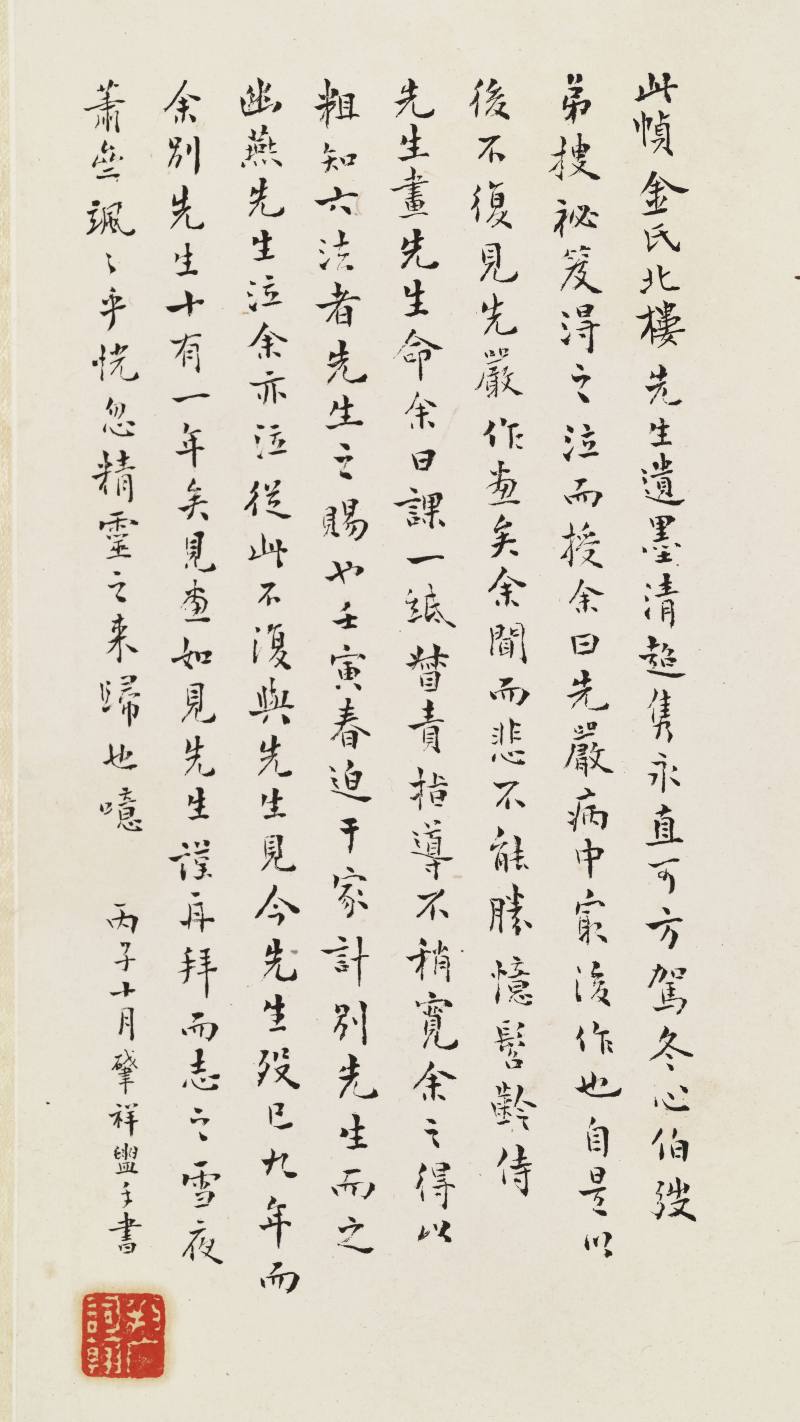 此幀金氏北樓先生遺墨清超雋永直可方駕冬心伯弢
弟搜祕笈得之泣而授余曰先嚴病中最後作也自是以
後不復見先嚴作畫矣余聞而悲不能勝憶髫齡侍
先生畫先生命余日課一紙督責指導不稍寬余之得以
粗知六法者先生之賜也壬寅春迫于家計別先生而之
幽燕先生泣余亦泣從此不復與先生見今先生歿已九年而
余別先生十有一年矣見畫如見先生謹再拜而志之雪夜
蕭寥颯〻乎恍忽精靈之來歸也噫
丙子十月肇祥盥手書